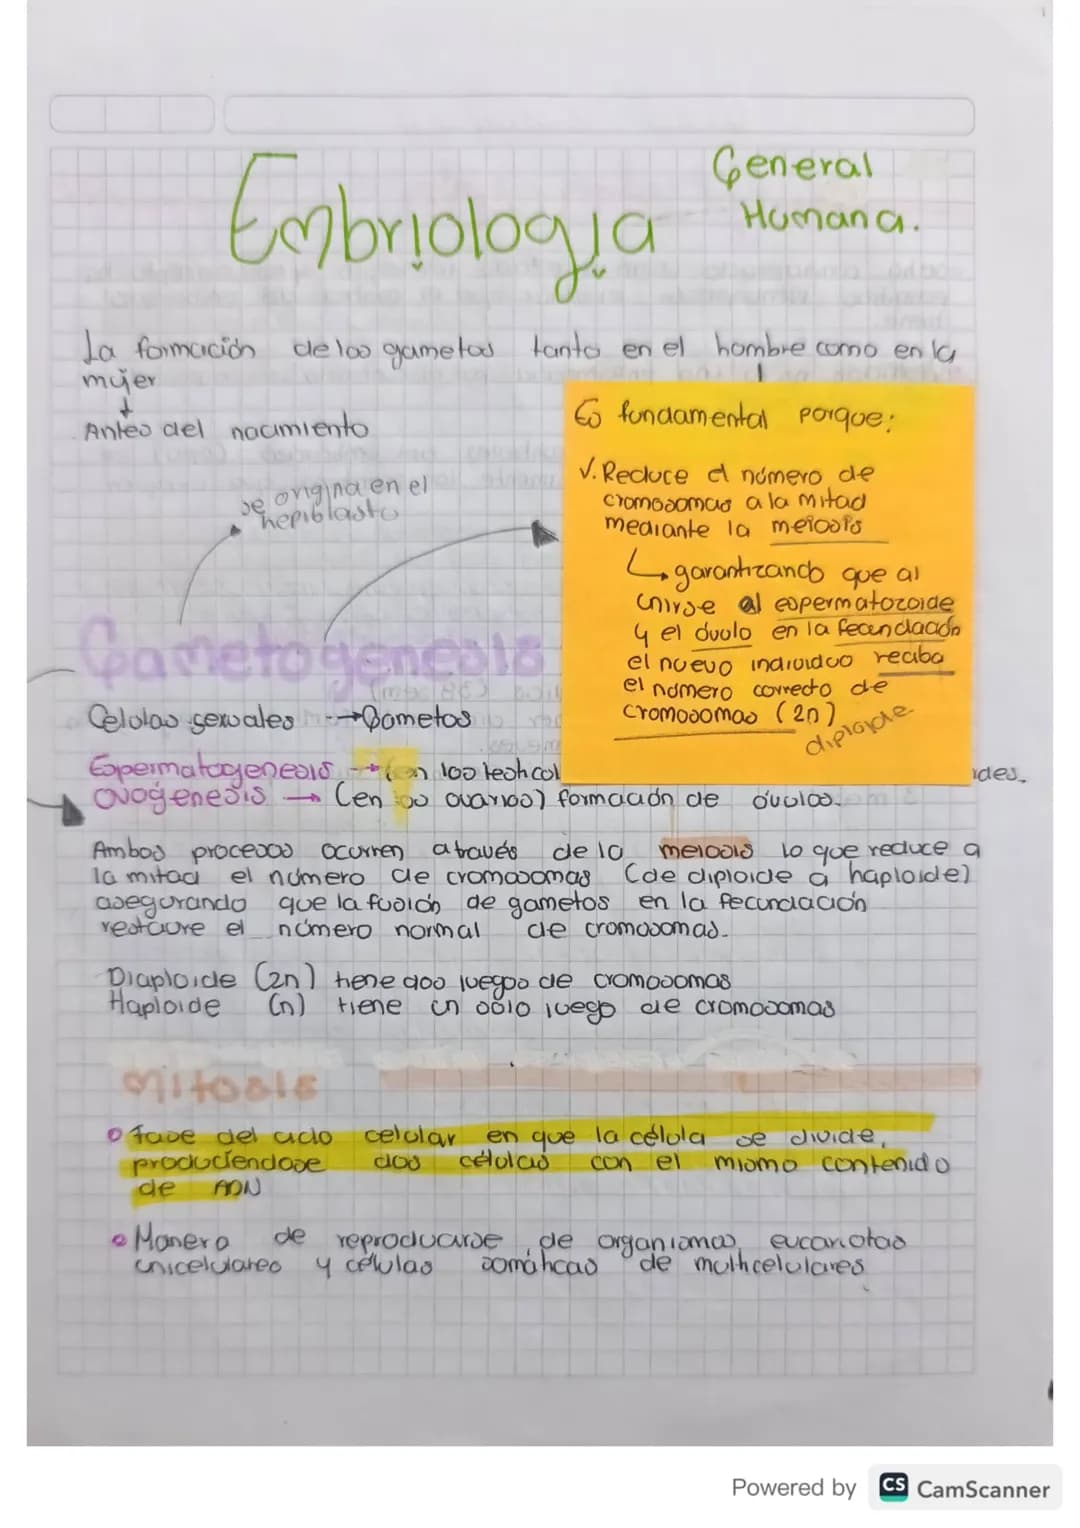 Embriología
General
Humana.
La formación de los gametos tanto en el hombre como en la
mujer
Antes del nacimiento
se origina en el
hepiblasto
Es fundamental porque:
√. Reduce el número de
cromosomas a la mitad
mediante la meiosis
garantizando que al
unirse al espermatozoide
y el óvulo en la fecundación
el nuevo individuo reciba
el número correcto de
cromosomas (2n)
diploide
Gametogenesis
Celulas sexuales → Gametos
Espermatogenesis → (en los testicul
ides.
Ovogenesis → (en los ovarios) formación de óvulos.
Ambos procesos ocurren a través de la meiosis lo que reduce a
la mitad el número de cromosomas (de diploide a haploide)
asegurando que la fusión de gametos en la fecundación
restaure el número normal de cromosomas.
Diaploide (2n) tiene dos juegos de cromosomas
Haploide (n) tiene un solo juego de cromosomas
Mitosis
Fase del ciclo celular en que la célula se divide,
produciendose dos células con el mismo contenido
de ADN
Manera de reproducirse de organismos eucariotas
unicelulares y células somáticas de multicelulares
Powered by CS CamScanner